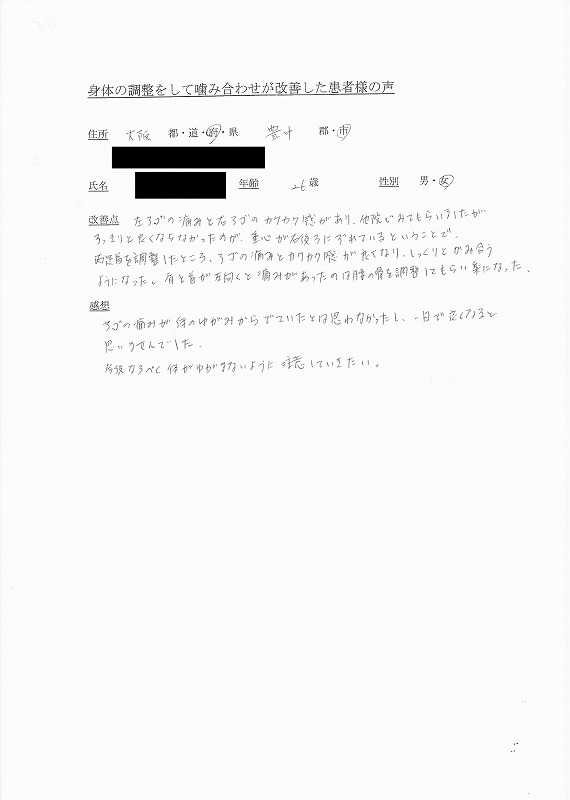 身体の調整をして噛み合わせが改善した患者様の声
住所 大阪 都・道・府・県 豊中 郡・市
氏名 年齢 26歳 性別 男・女
改善点 左アゴの痛みと右アゴのカクカク感があり、他院でみてもらいましたが
すっきりと良くならなかったのが、重心が右後ろにずれているということで、
両足首を調整したところ、アゴの痛みとカクカク感が良くなり、しっくりとかみ合う
ようになった。肩と首が左向くと痛みがあったのは の骨を調整してもらい楽になった。
感想
アゴの痛みが体のゆがみからでていたとは思わなかったし、一日で良くなると
思いませんでした。
今後なるべく体がゆがまないように注意していきたい。